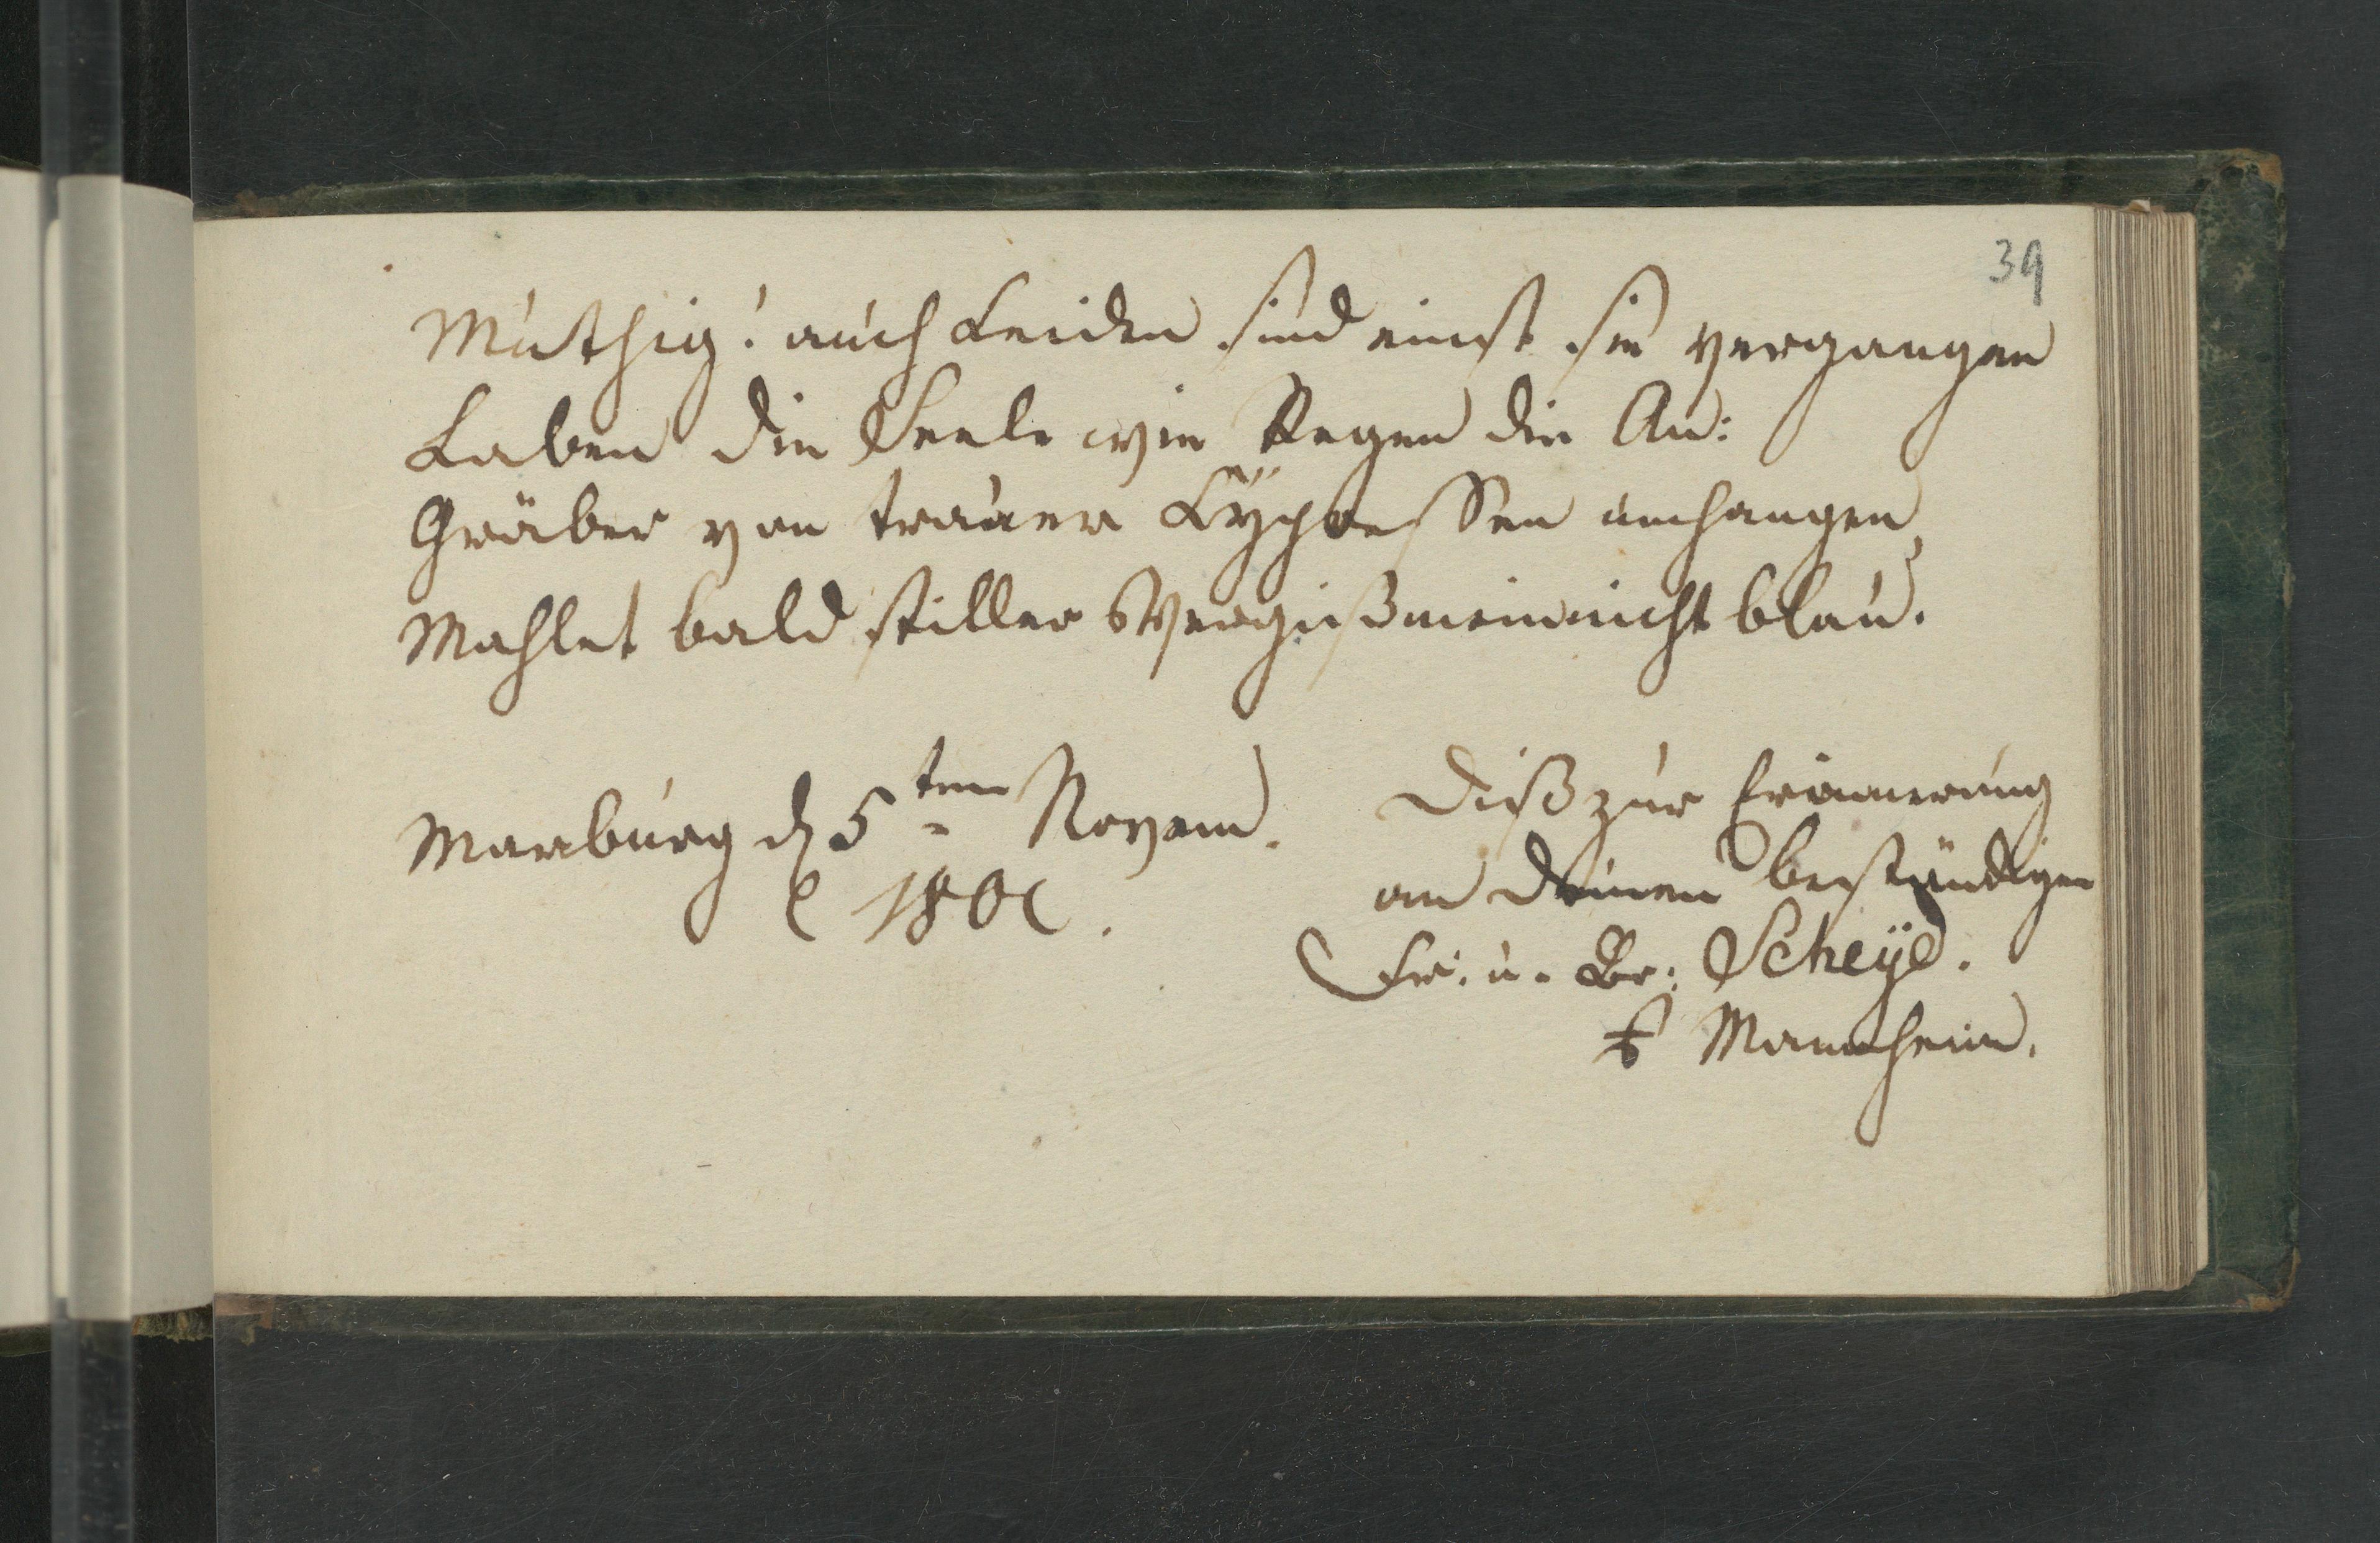 39
Muthig! auch Leiden sind einst sie vergangen
Laben die Seele wie Regen die Au:
Gräber von trauer Cypressen umhangen,
Mahlet bald stiller Vergißmeinnicht blau.
Marburg d 5ten Novem.
1801.
Diß zur Erinnerung
an deinen beständigen
Fr: u. Br: Scheyd.
Mannheim.